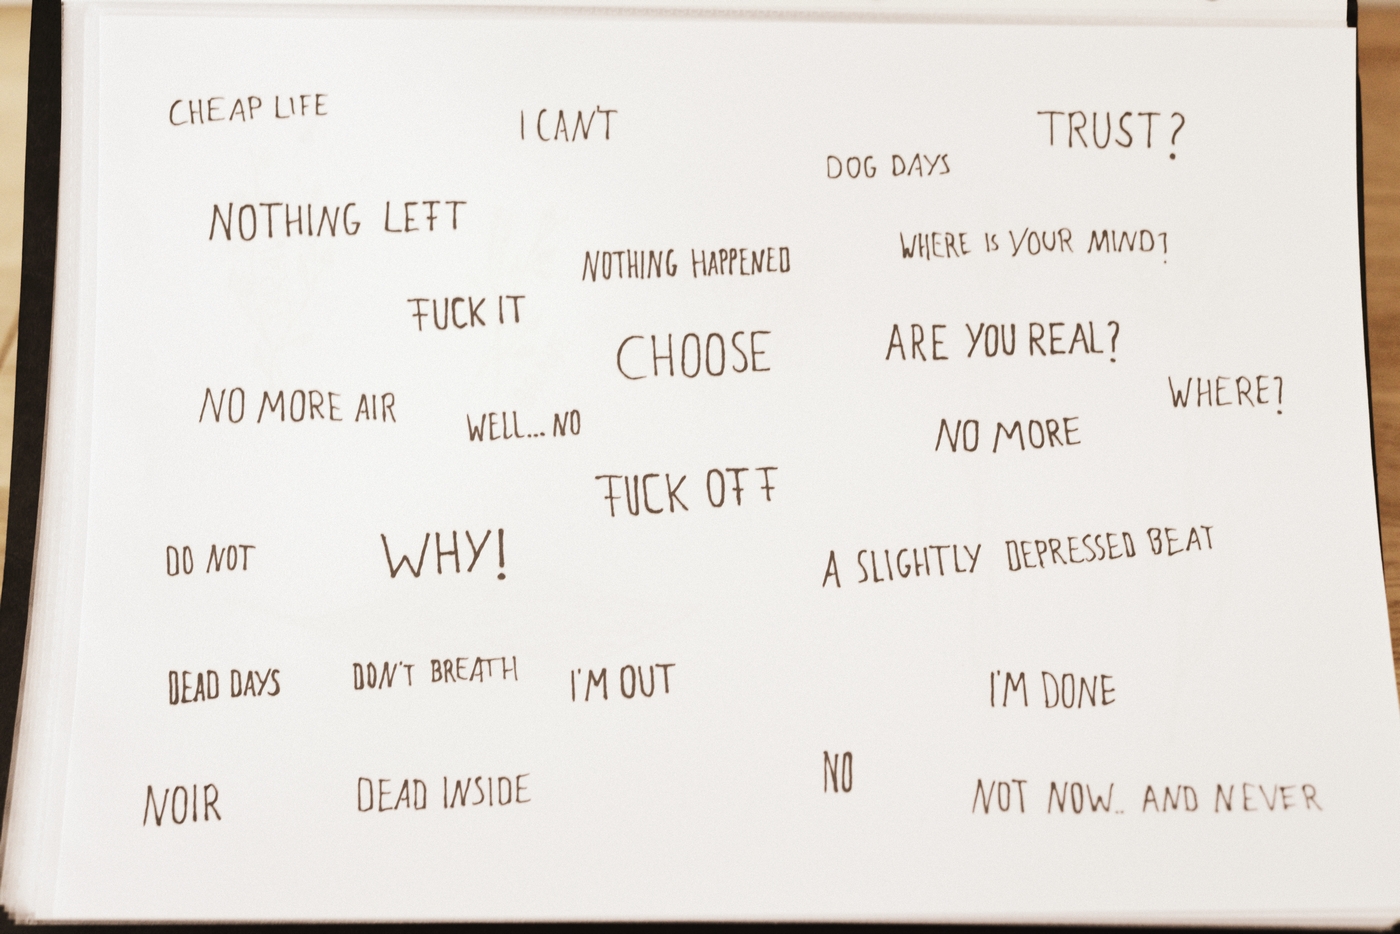 CHEAP LIFE
I CAN'T
TRUST?
DOG DAYS
NOTHING LEFT
WHERE IS YOUR MIND?
NOTHING HAPPENED
FUCK IT
CHOOSE
ARE YOU REAL?
WHERE?
NO MORE AIR
WELL... NO
NO MORE
FUCK OFF
DO NOT
WHY!
A SLIGHTLY DEPRESSED BEAT
DEAD DAYS
DON'T BREATH
I'M OUT
I'M DONE
NOIR
DEAD INSIDE
NO
NOT NOW.. AND NEVER